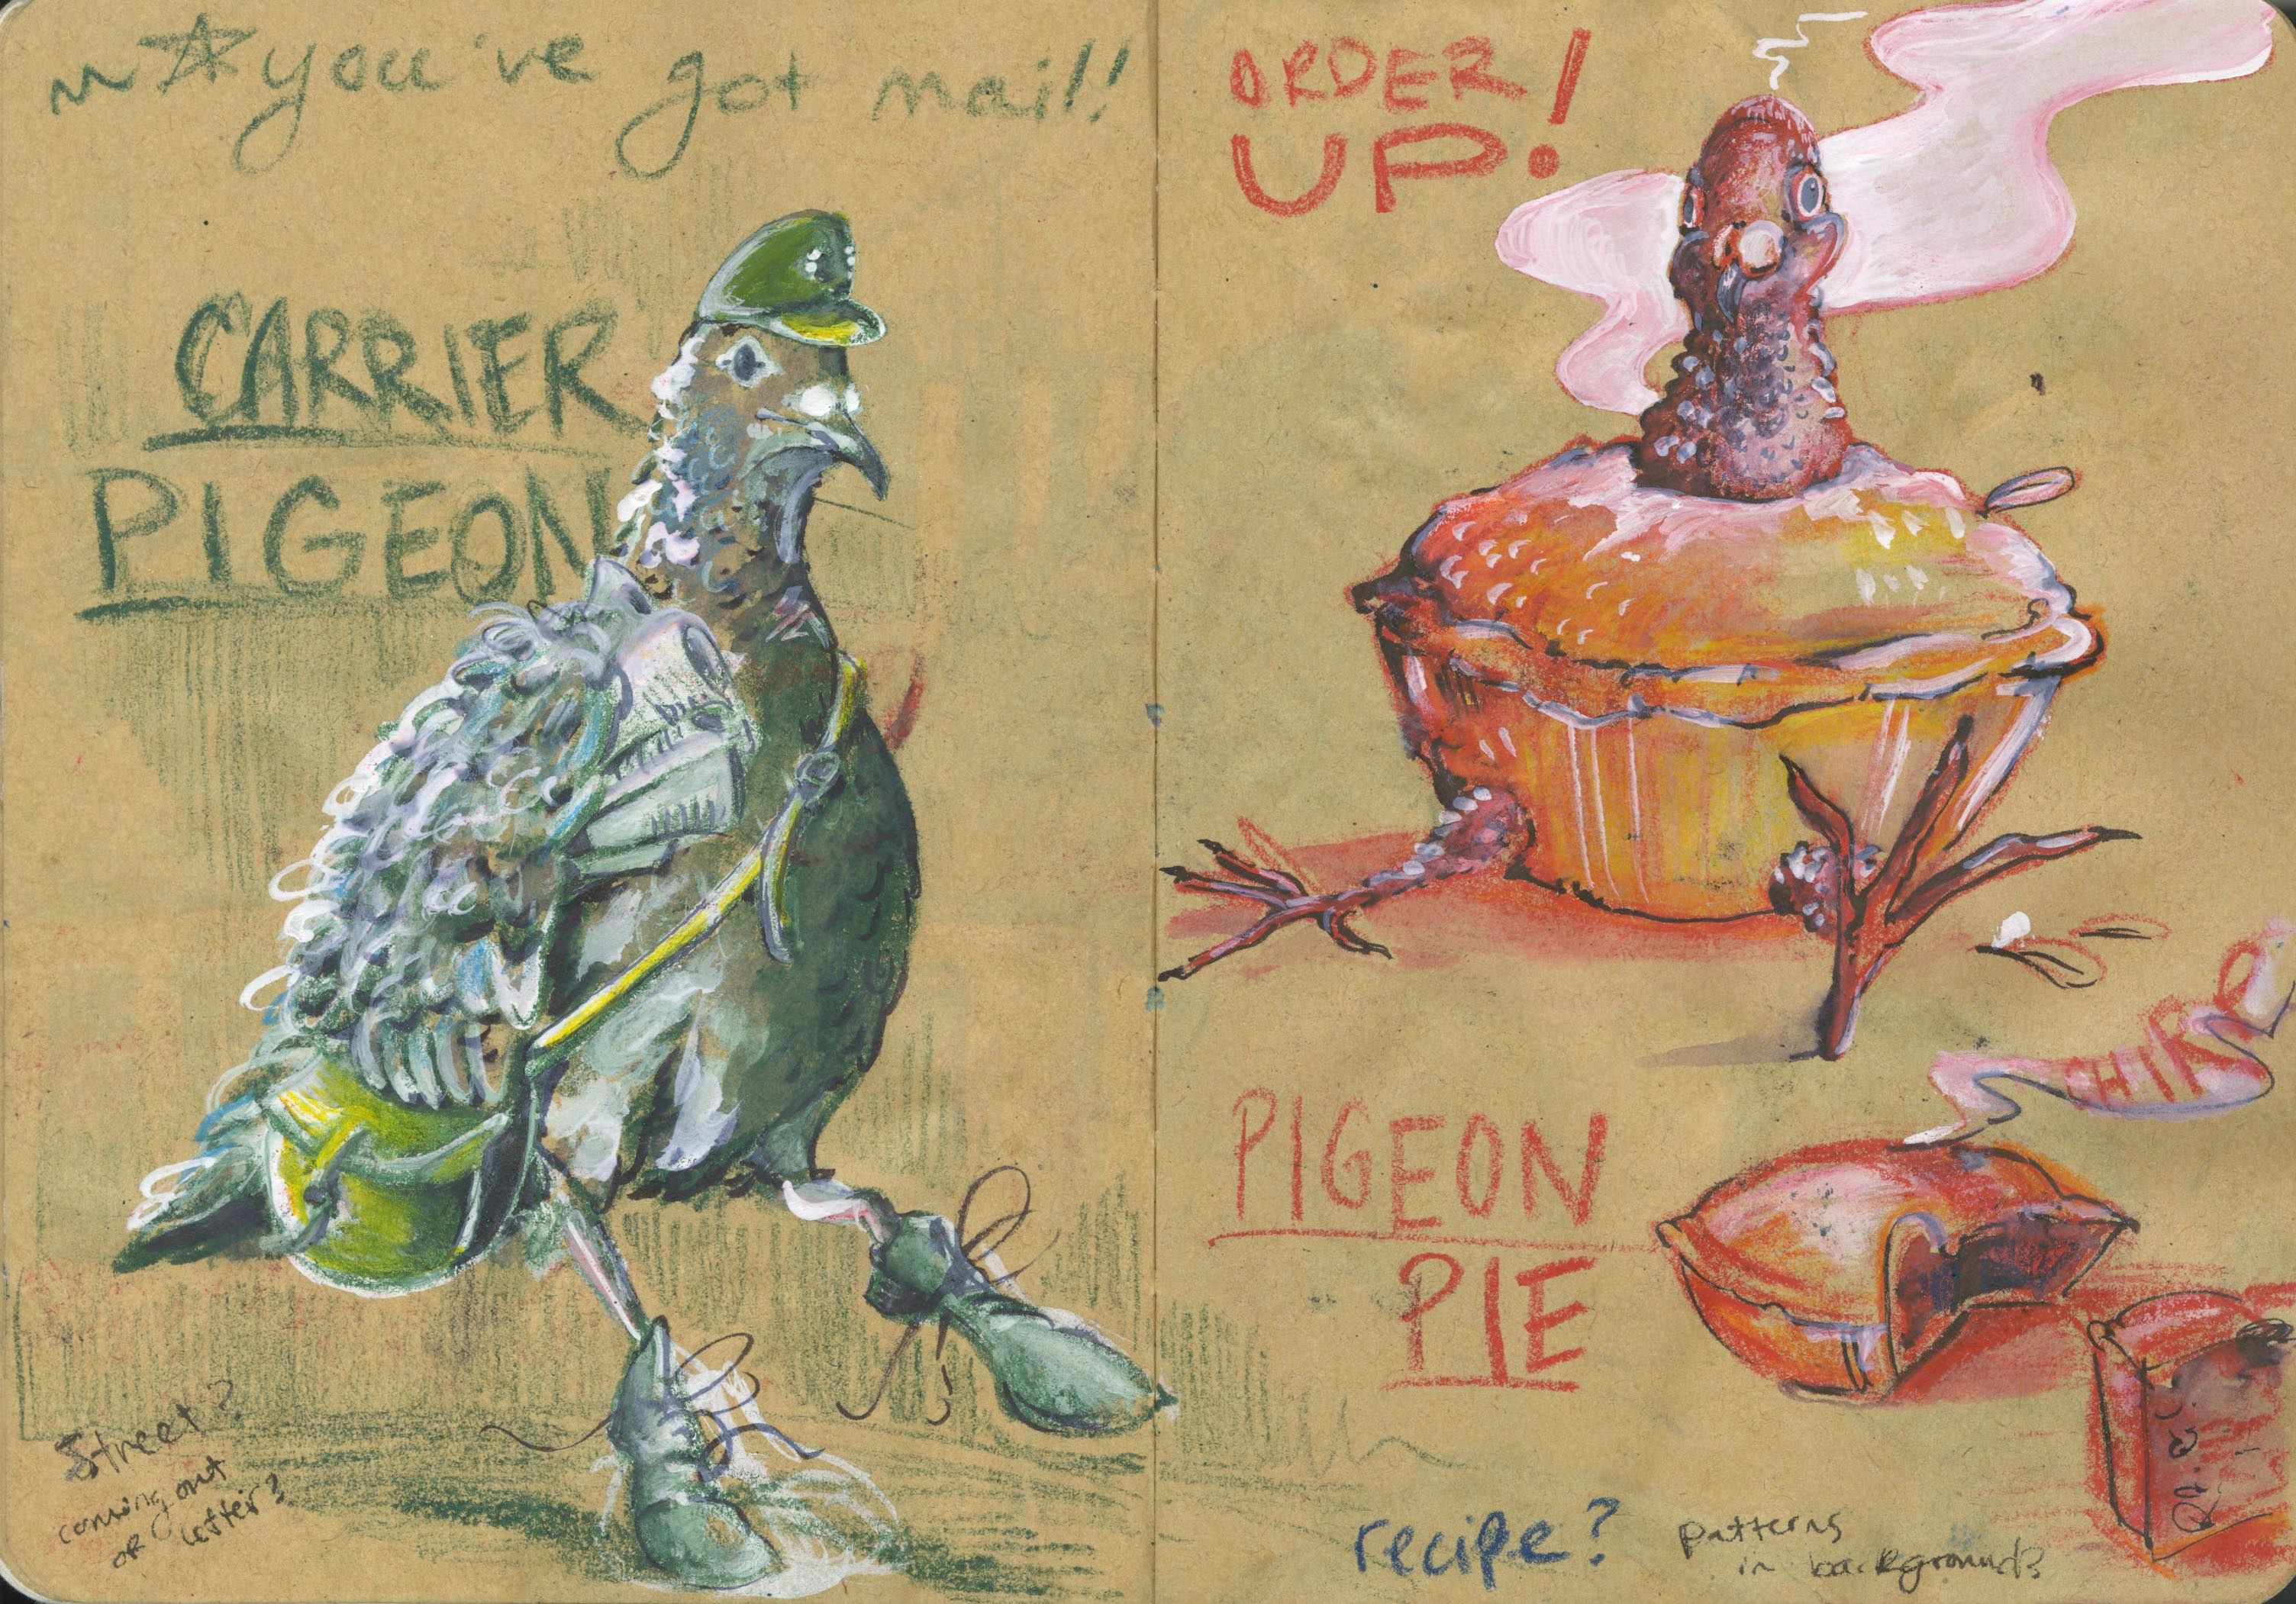 you've got mail!!
CARRIER
PIGEON
Street?
coming out
or letter?
ORDER
UP!
CHIRP
PIGEON
PIE
recipe?
patterns
in backgrounds